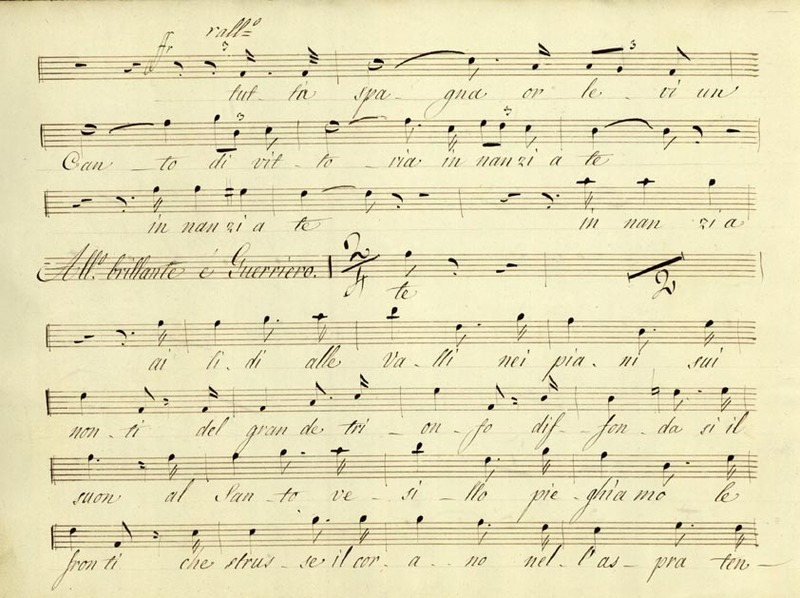 rall.º
3 3
tut - ta spa - gna or - le - vi un
3 3
Can - to di vit - to - ria in nanzi a te
in nan zi a te in nan zi a
All.º brillante é Guerriero. 2/4 te 2
ai li - di alle va - lli nei pia - ni sui
mon - ti del gran de tri - on - fo dif - fon - da si il
suon al San - to ve - si - llo pie - ghia mo le
fron ti che strus - se il cor - a - no nel - l'as - pra ten -